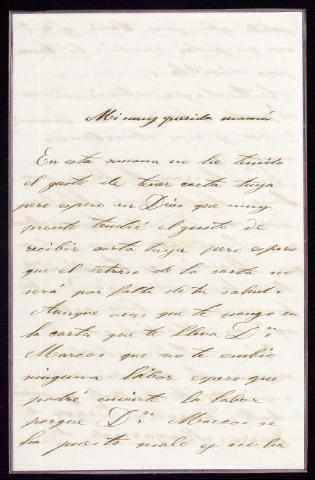 Mi muy querida mamá
En esta semana no he tenido
el gusto de tener carta tuya
pero espero en Dios que muy
pronto tendré el gusto de
recibir carta tuya pero espero
que el retraso de la carta no
será por falta de tu salud.
Aunque veas que te pongo en
la carta que te lleva Dn
Marcos que no te embio
ninguna lábor espero que
podré enviarte la labor
porque Dn Marcos se
ha puesto malo y no ha